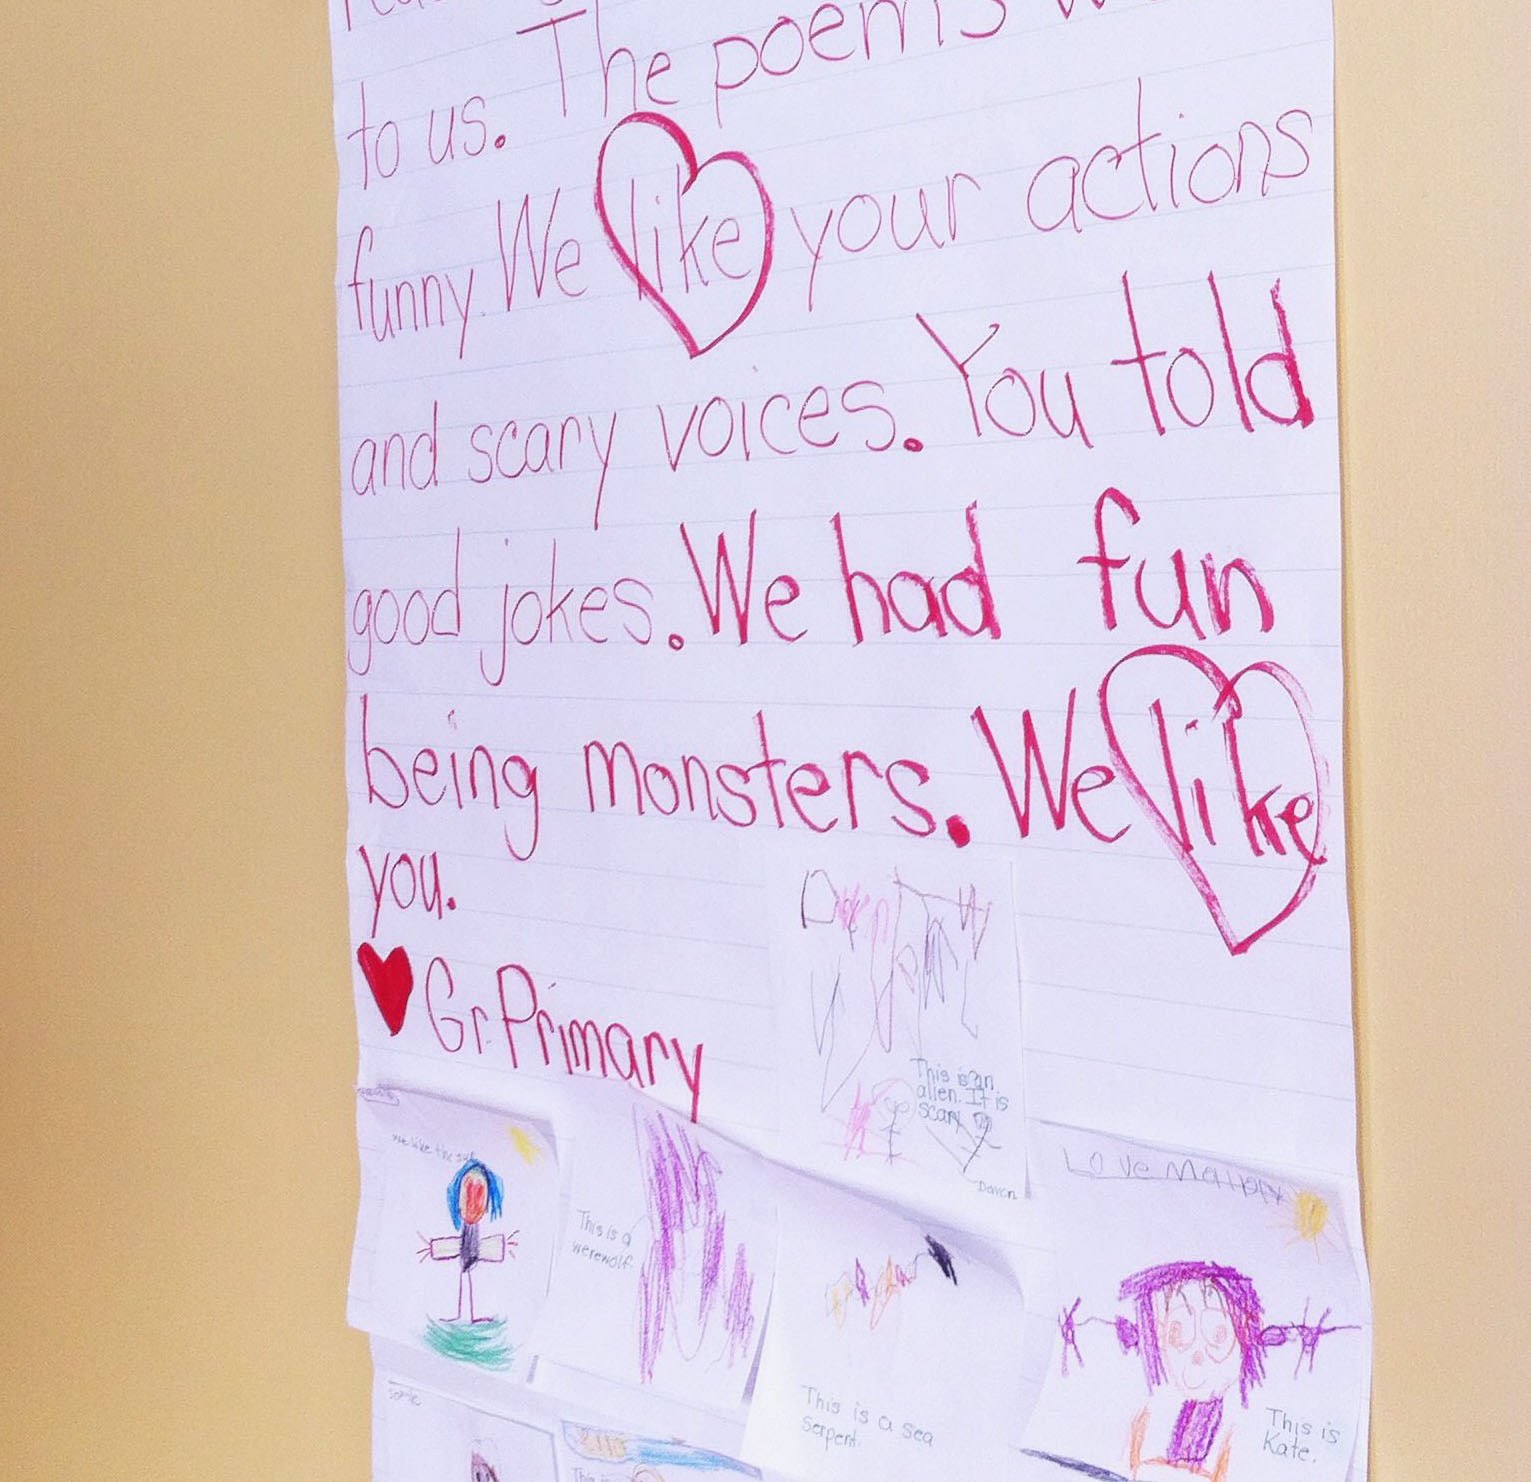 to us. The poems
funny. We like your actions
and scary voices. You told
good jokes. We had fun
being monsters. We like
you.
Gr. Primary
This is an
alien. It is
scary
Darren
we like the sun
This is a
werewolf.
This is a sea
serpent.
Love Mallory
This is
Kate.
This is